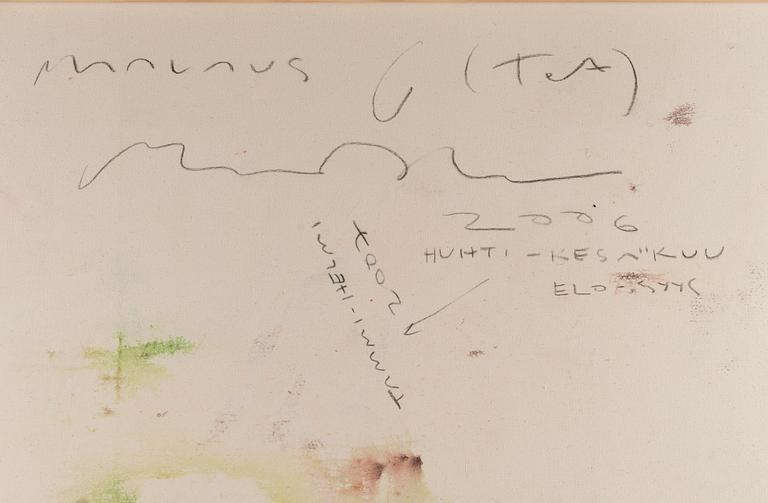 MAALAUS 6 (TEA)
2006
HUHTI-KESÄKUU
ELO-SYYS
2007
TAMMI-HELMI